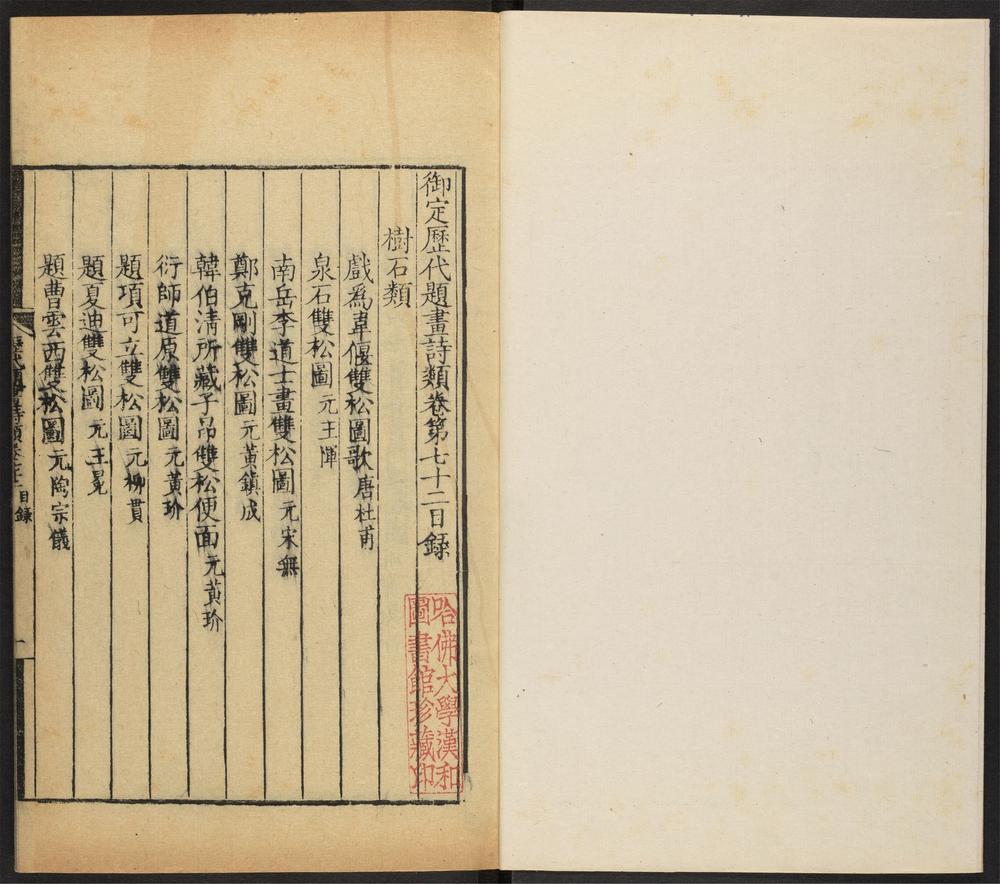 御定歷代題畫詩類卷第七十二目錄
樹石類
戲爲韋偃雙松圖歌 唐杜甫
泉石雙松圖 元王惲
南岳李道士畫雙松圖 元宋無
鄭克剛雙松圖 元黃鎮成
韓伯清所藏子昂雙松便面 元黃玠
衍師道原雙松圖 元黃玠
題項可立雙松圖 元柳貫
題夏迪雙松圖 元王冕
題曹雲西雙松圖 元陶宗儀
目錄
一
哈佛大學漢和
圖書館珍藏印